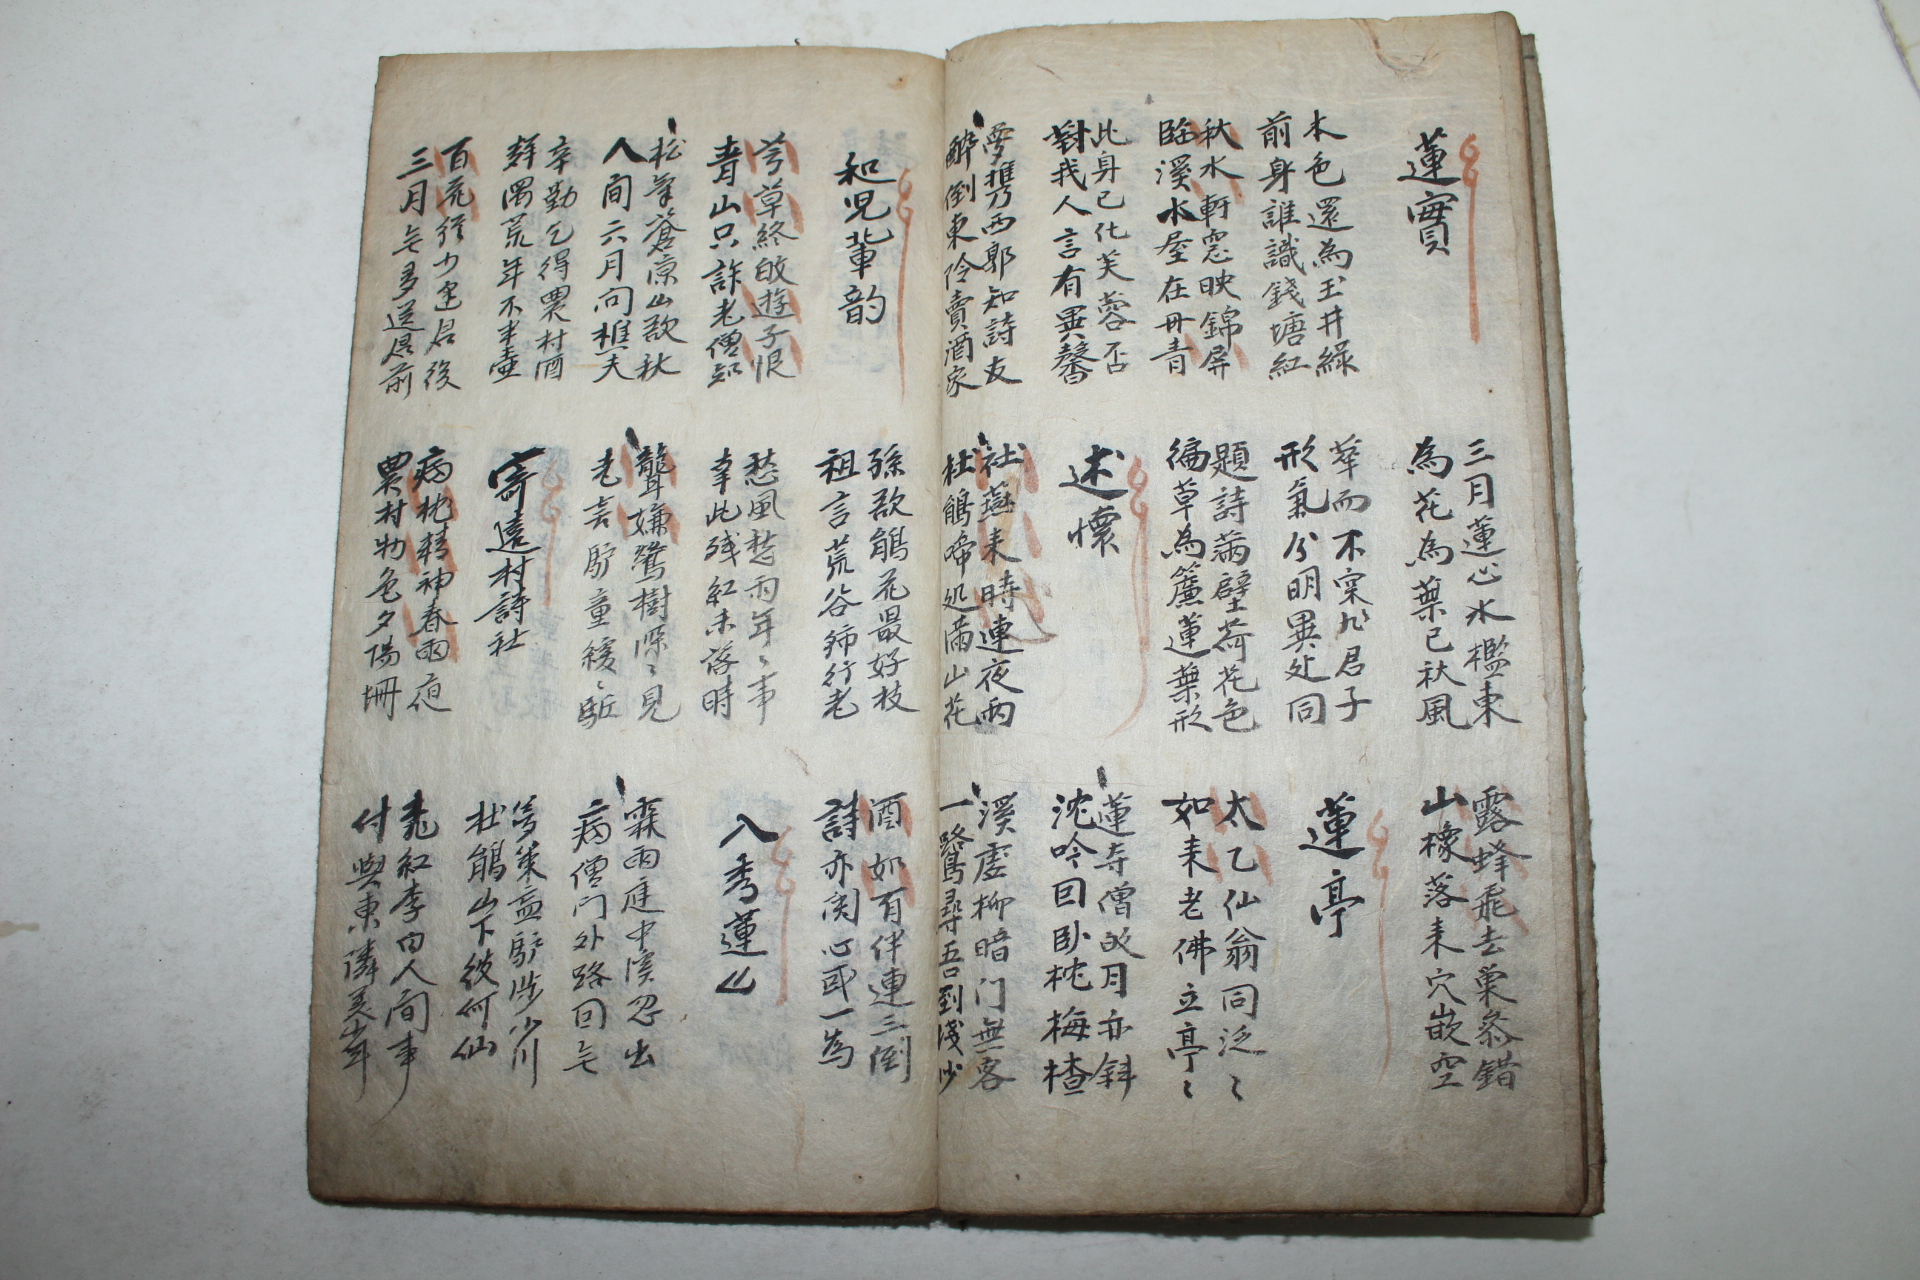 蓮實
三月蓮心水檻東
為花為葉已秋風
露蜂飛去巢叅錯
山橡落來穴嵌空
木色還為玉井綠
前身誰識錢塘紅
華而不実九君子
形氣分明異处同
蓮亭
秋水軒窓映錦屏
臨溪水屋在丹青
題詩滿壁荷花色
徧草為簾蓮葉形
太乙仙翁同泛〻
如來老佛立亭〻
此身已化芙蓉否
對我人言有異馨
述懷
蓮寺僧敀月亦斜
沈吟回卧枕梅楂
夢携西郭知詩友
醉倒東伶賣酒家
社燕來時連夜雨
杜鵑啼処滿山花
溪虛柳暗门無客
一路鶯尋吾到淺沙
和児輩韵
孫歌鵑花最好枝
祖言荒谷 行老
酒如有伴連三倒
詩亦関心或一為
芳草終敀遊子恨
青山只許老僧知
愁風愁雨年〻事
幸此残紅未落時
八秀蓮
松 蒼凉山歌秋
人间六月问樵夫
聾嫌鶯樹深〻見
老喜馿童緩〻駈
霖雨庭中溟忽出
病僧门外路回无
辛勤乞得農村酒
荒年不半壺
寄遠村詩社
馿涉小川
杜鵑山下彼何仙
百花 少 君後
三月无多送君前
病枕精神春雨夜
農村物色夕陽
桃紅李白人间事
付與東隣美少年